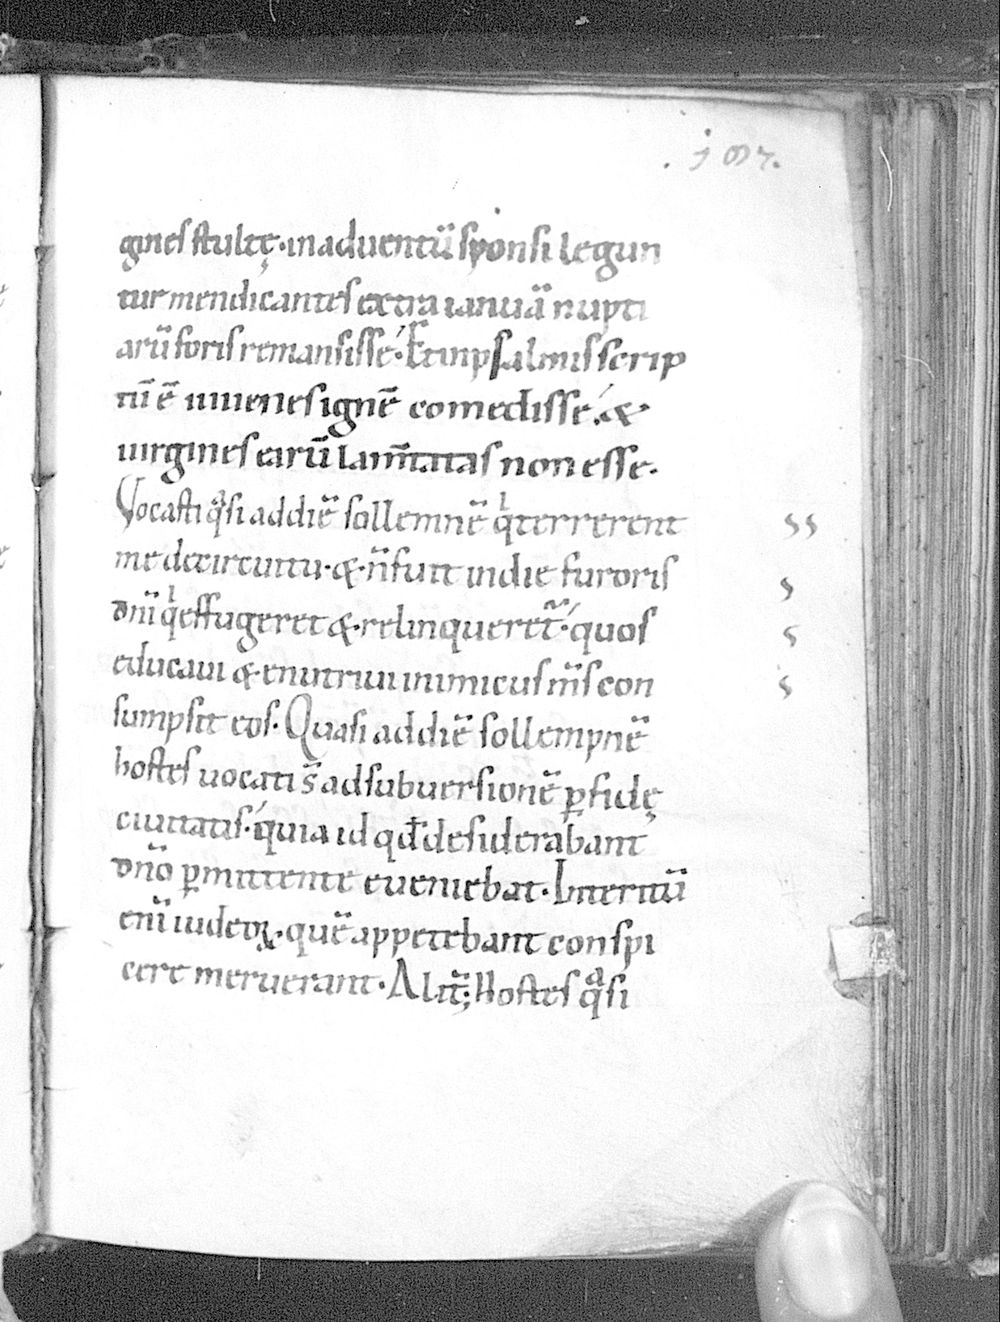 . j 07.
gines stultę· in aduentū sponsi legun
tur mendicantes extra ianuā nupti
arū foris remansisse· Et in psalmis scrip
tū ē iuuenes ignē comedisse· &·
uirgines earū lam̄tatas non esse·
Vocasti qͣsi ad diē sollemnē qͥ terrerent
me de circuitu· &· n̄ fuit in die furoris
dn̄i qͥ effugeret &· relinqueret̃· quos
educaui &· enutriui inimicus m̄s con
sumpsit eos· Quasi ad diē sollempnē
hostes uocati s̄ ad subuersionē ꝑfidę
ciuitatis· quia id qd̄ desiderabant
dn̄o ꝑmittente eueniebat· Interitū
enī iudeoꝝ· quē appetebant conspi
cere meruerant· Alit̃; Hostes qͣsi